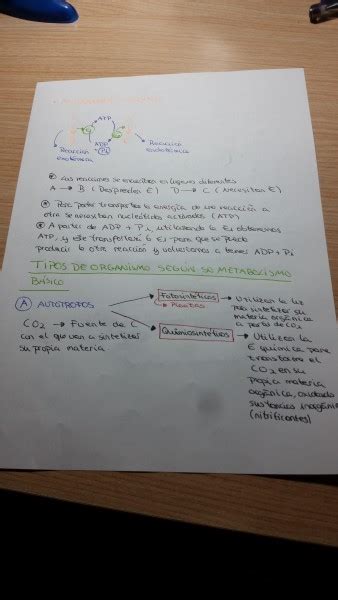 ATP
ADP
+ Pi
Reacción
exotérmica
Reacción
endotérmica
Las reacciones se encuentran en lugares diferentes
A → B (Desprenden E) D → C (Necesitan E)
Para poder transportar la energía de una reacción a
otra se necesitan nucleótidos activados (ATP)
A partir de ADP + Pi, utilizando la E, obtenemos
ATP, y este transportará la E, para que se pueda
producir la otra reacción y volveríamos a tener ADP + Pi
TIPOS DE ORGANISMO SEGÚN SU METABOLISMO
BÁSICO
A AUTÓTROFOS
CO2 → Fuente de C
con el que van a sintetizar
su propia materia
Fotosintéticos → Utilizan la luz
para sintetizar su
materia orgánica
a partir de CO2
Quimiosintéticos → Utilizan la
E química para
transformar el
CO2 en su
propia materia
orgánica, oxidando
sustancias inorgánicas
(nitrificantes)